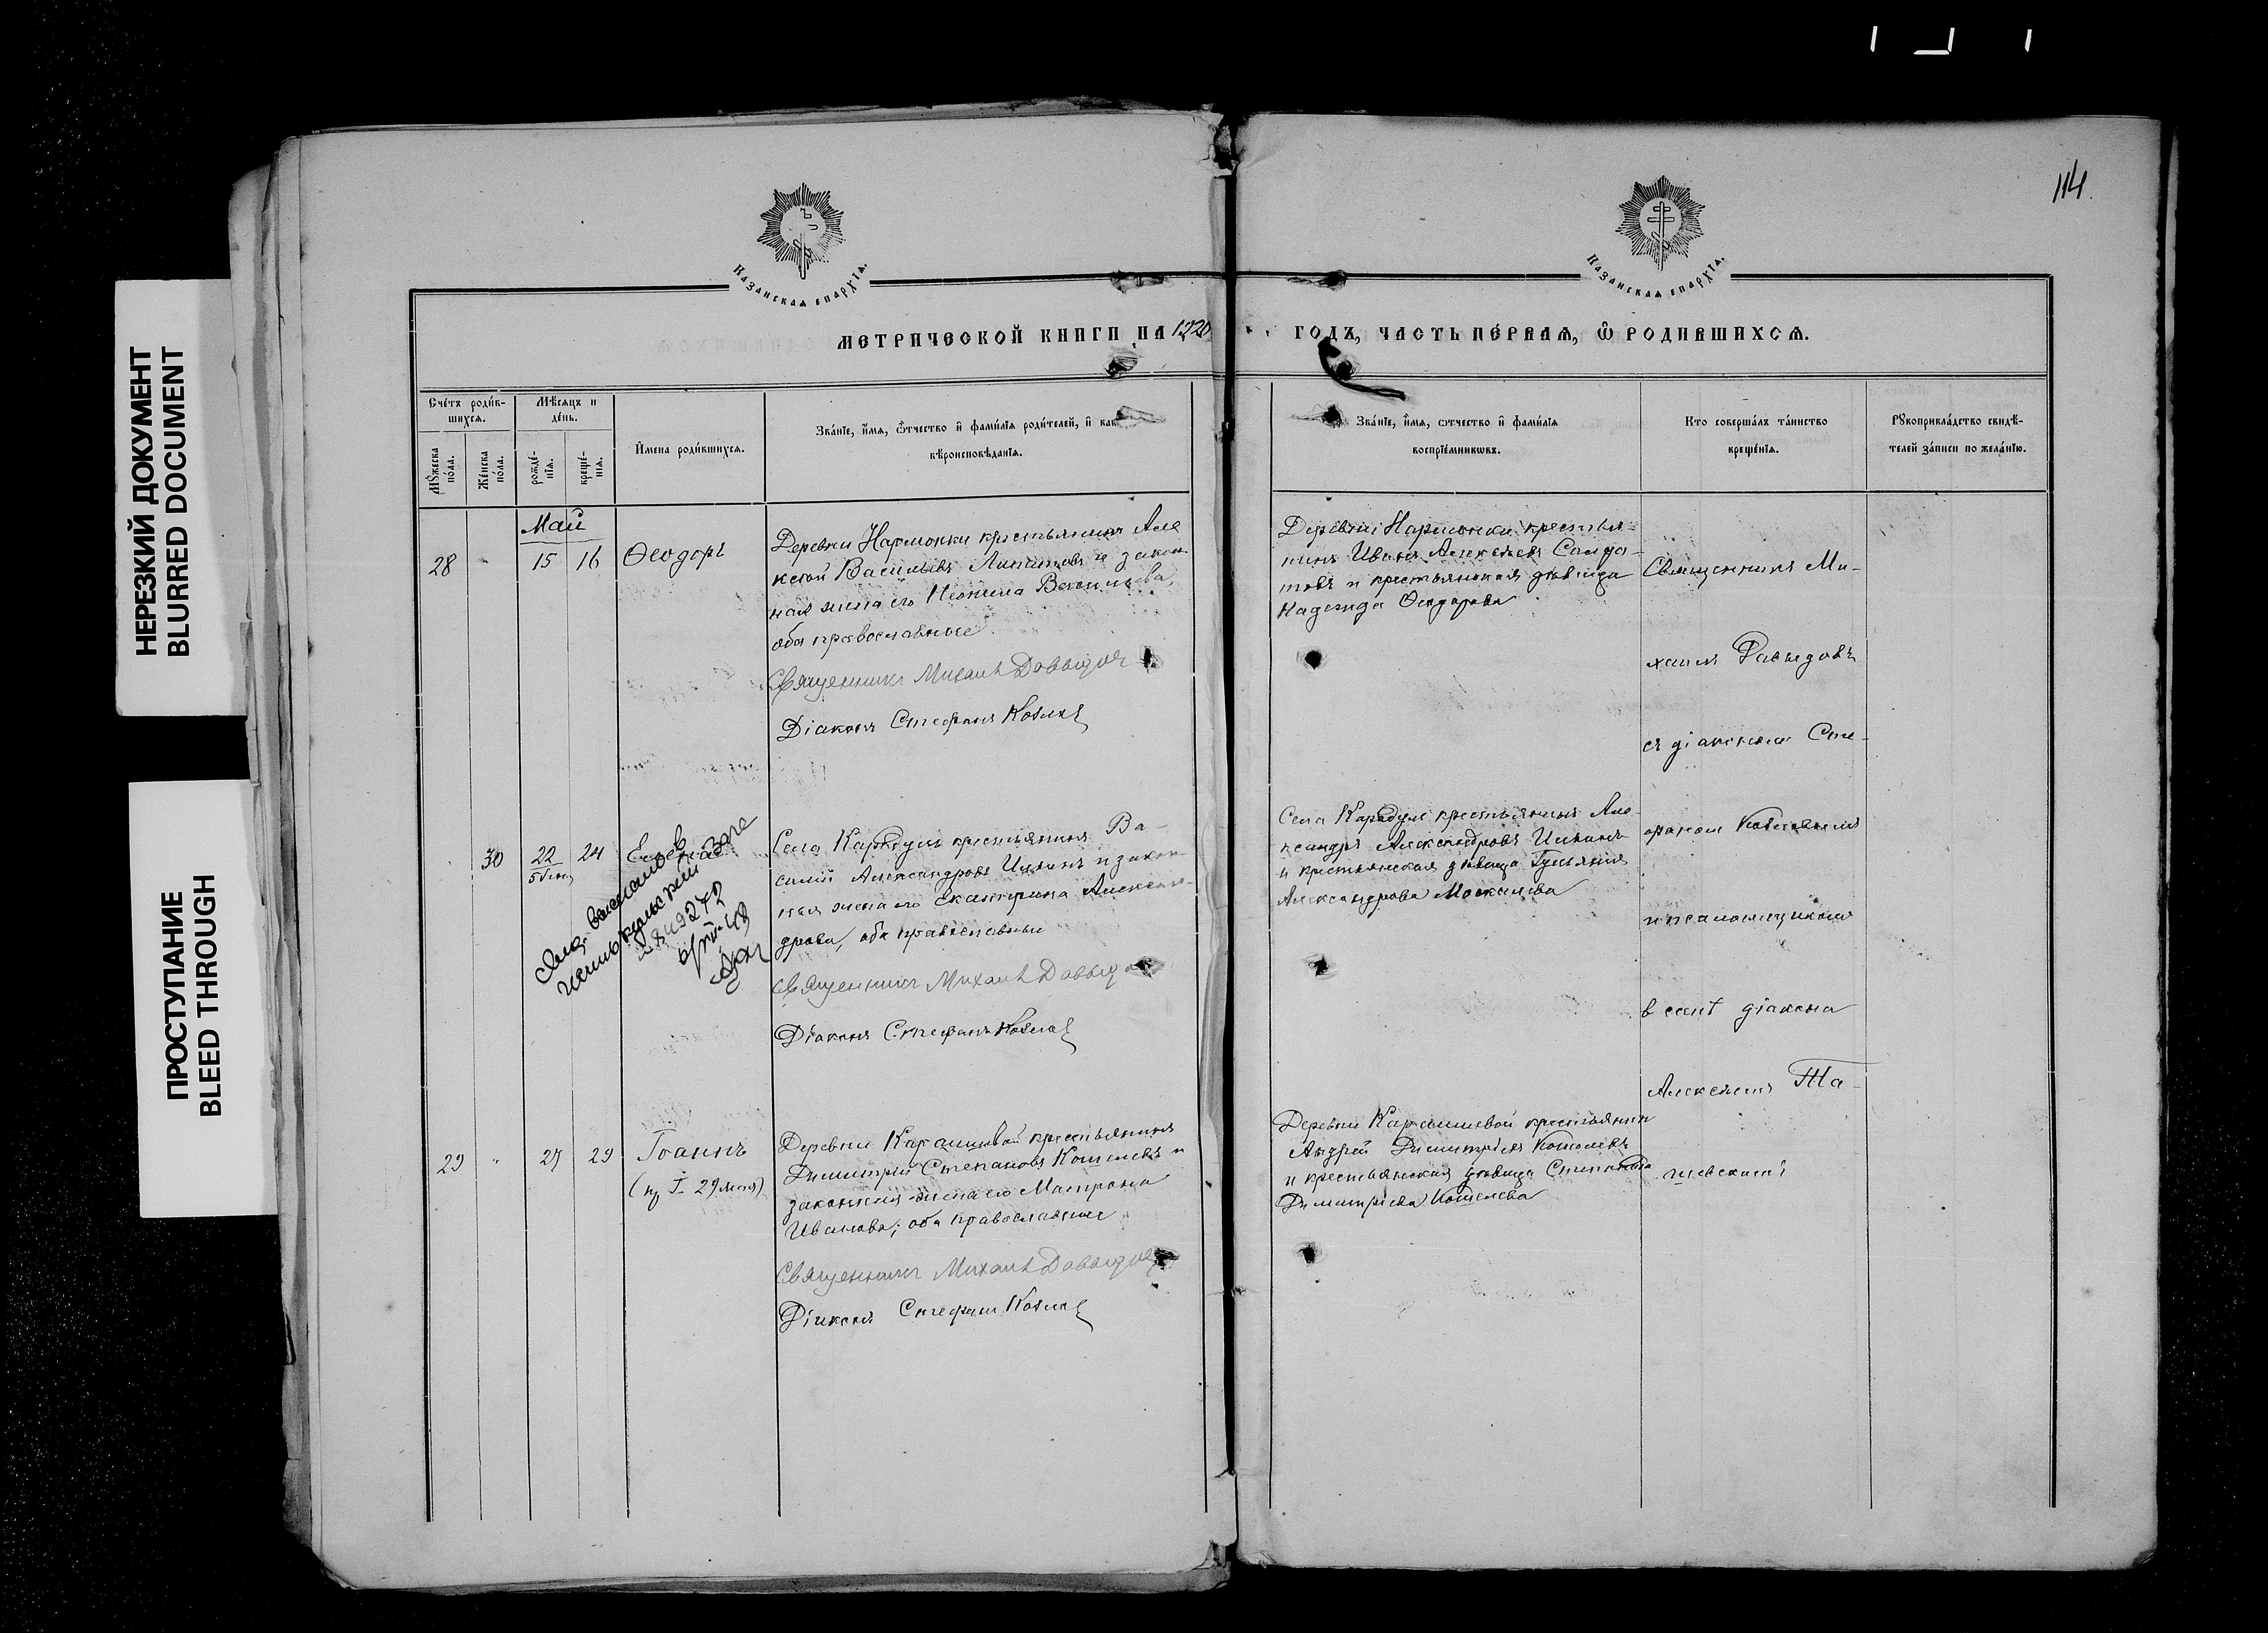 114.
НЕРЕЗКИЙ ДОКУМЕНТ
BLURRED DOCUMENT
ПРОСТУПАНИЕ
BLEED THROUGH
Казанская епархїѧ.
Казанская епархїѧ.
МЕТРИЧЕСКОЙ КНИГИ НА 1920 ГОДЪ, ЧАСТЬ ПЕ́РВАЯ, Ѿ РОДИВШИХСѦ.
Сче́тъ роди́в-
шихсѧ.
Мѣ́сяцъ и
де́нь.
Мꙋ́жеска
по́ла.
Же́нска
по́ла.
рожде́-
нїѧ.
креще́-
нїѧ.
И҆мена роди́вшихсѧ.
Зва́нїе, и҆́мѧ, ѻ҆́тчество и҆ фами́лїѧ роди́телей, и҆ как
вѣроисповѣ́данїѧ.
Зва́нїе, и҆́мѧ, ѻтчество и҆ фами́лїѧ
воспрїе́мникѡвъ.
Кто соверша́лъ та́инство
креще́нїѧ.
Рꙋкоприкла́дство свидѣ́-
телей за́писи по жела́нїю.
Май
28 " 15 16 Ѳеодоръ
Деревни Нармонки крестьянинъ Але
ксѣй Васильевъ и закон
ная жена его Васильева,
оба православные
Священникъ Михаилъ Давыдов
Дiаконъ Стефанъ Козлов
Деревни Нармонки крестья-
нинъ Иванъ Алексѣевъ Солда-
товъ и крестьянская дѣвица
Надежда Ѳеодорова
Священникъ Ми-
хаилъ Давыдовъ
съ дiакономъ Сте-
фаномъ Козловымъ
и псаломщикомъ
в санѣ дiакона
Алексѣемъ Та-
30 22 24 Елена
Села Карадули крестьянинъ Ва-
силiй Александровъ Ильинъ и закон
ная жена его Екатерина Алексан-
дрова, оба православные
Священникъ Михаилъ Давыд
Дiаконъ Стефанъ Козлов
Села Карадули крестьянинъ Але
ксандръ Александровъ Ильинъ
и крестьянская дѣвица
Александрова Москалева
29 " 27 29 Iоаннъ
29 мая)
Деревни Карашевой крестьянинъ
Димитрiй Степановъ Кошелевъ и
законная жена его Матрона
Иванова, оба православные
Священникъ Михаилъ Давыдов
Дiаконъ Стефанъ Козлов
Деревни Карашевой крестьянинъ
Андрей Димитрiевъ Кошелевъ
и крестьянская дѣвица
Димитрiева Кошелева